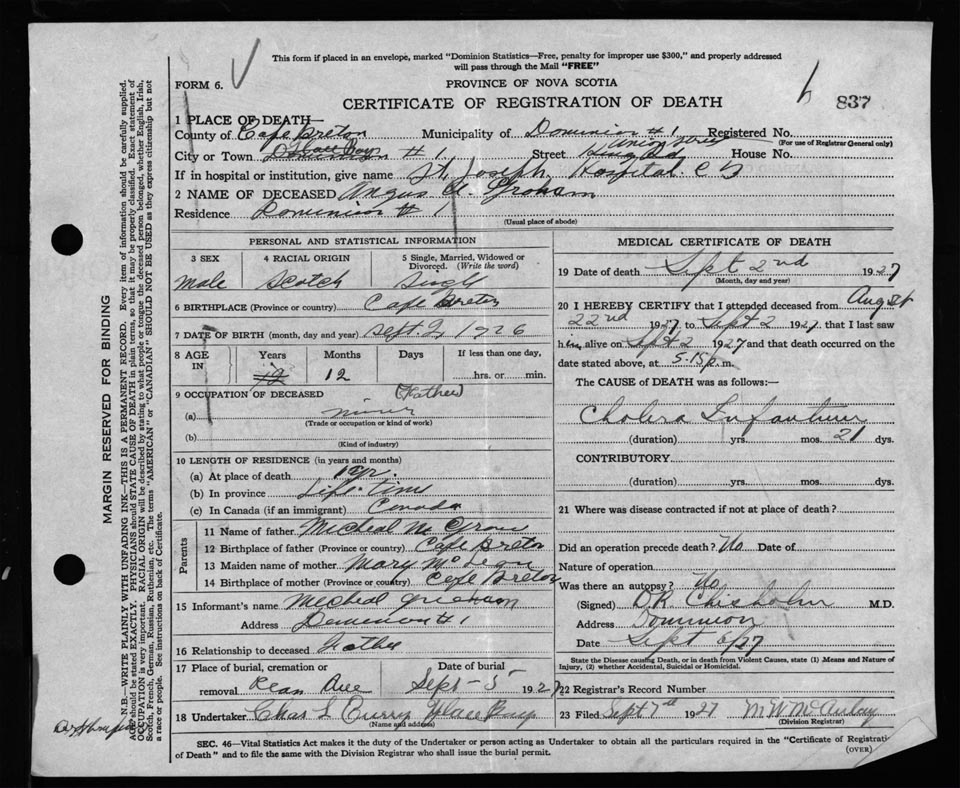 This form if placed in an envelope, marked "Dominion Statistics—Free, penalty for improper use $300," and properly addressed
will pass through the Mail "FREE"
FORM 6.
PROVINCE OF NOVA SCOTIA
CERTIFICATE OF REGISTRATION OF DEATH
837
1 PLACE OF DEATH—
County of Cape Breton Municipality of Dominion # 1 Registered No.
(For use of Registrar General only)
City or Town Dominion # 1 Street Union Street House No.
If in hospital or institution, give name St. Joseph Hospital
2 NAME OF DECEASED Angus A. Graham
Residence Dominion # 1
(Usual place of abode)
PERSONAL AND STATISTICAL INFORMATION
3 SEX 4 RACIAL ORIGIN 5 Single, Married, Widowed or Divorced. (Write the word)
male Scotch Single
6 BIRTHPLACE (Province or country) Cape Breton
7 DATE OF BIRTH (month, day and year) Sept. 2, 1926
8 AGE IN Years Months Days If less than one day,
12 hrs. or min.
9 OCCUPATION OF DECEASED (Father)
(a) miner
(Trade or occupation or kind of work)
(b)
(Kind of industry)
10 LENGTH OF RESIDENCE (in years and months)
(a) At place of death 1 yr.
(b) In province Life time
(c) In Canada (if an immigrant) Canada
Parents
11 Name of father Micheal
12 Birthplace of father (Province or country) Cape Breton
13 Maiden name of mother Mary
14 Birthplace of mother (Province or country) Cape Breton
15 Informant's name Micheal Graham
Address Dominion # 1
16 Relationship to deceased Father
17 Place of burial, cremation or removal Date of burial
Ave Sept - 5 1927
18 Undertaker Chas Curry Glace Bay
(Name and address)
MEDICAL CERTIFICATE OF DEATH
19 Date of death Sept 2nd 1927
(Month, day and year)
20 I HEREBY CERTIFY that I attended deceased from August
22nd 1927, to Sept 2 1927, that I last saw
him alive on Sept 2 1927 and that death occurred on the
date stated above, at 5.15 p. m.
The CAUSE of DEATH was as follows:—
Cholera Infantum
(duration) yrs. mos. 21 dys.
CONTRIBUTORY.
(duration) yrs. mos. dys.
21 Where was disease contracted if not at place of death?
Did an operation precede death? No Date of
Nature of operation
Was there an autopsy? No
(Signed) D.R. Chisholm M.D.
Address Dominion
Date Sept 6/27
State the Disease causing Death, or in death from Violent Causes, state (1) Means and Nature of
Injury, (2) whether Accidental, Suicidal or Homicidal.
22 Registrar's Record Number
23 Filed Sept 7th 1927 M W McAulay
(Division Registrar)
SEC. 46—Vital Statistics Act makes it the duty of the Undertaker or person acting as Undertaker to obtain all the particulars required in the "Certificate of Registration
of Death" and to file the same with the Division Registrar who shall issue the burial permit.
(OVER)
MARGIN RESERVED FOR BINDING
N.B.—WRITE PLAINLY WITH UNFADING INK—THIS IS A PERMANENT RECORD. Every item of information should be carefully supplied.
AGE should be stated EXACTLY. PHYSICIANS should STATE CAUSE OF DEATH in plain terms, so that it may be properly classified. Exact statement of
OCCUPATION is very important. RACIAL ORIGIN will be described by stating to what people or tongue the deceased person belonged, whether English, Irish,
Scotch, French, German, Russian, Ruthenian, etc. The terms "AMERICAN" or "CANADIAN" SHOULD NOT BE USED as they express citizenship but not
a race or people. See instructions on back of Certificate.